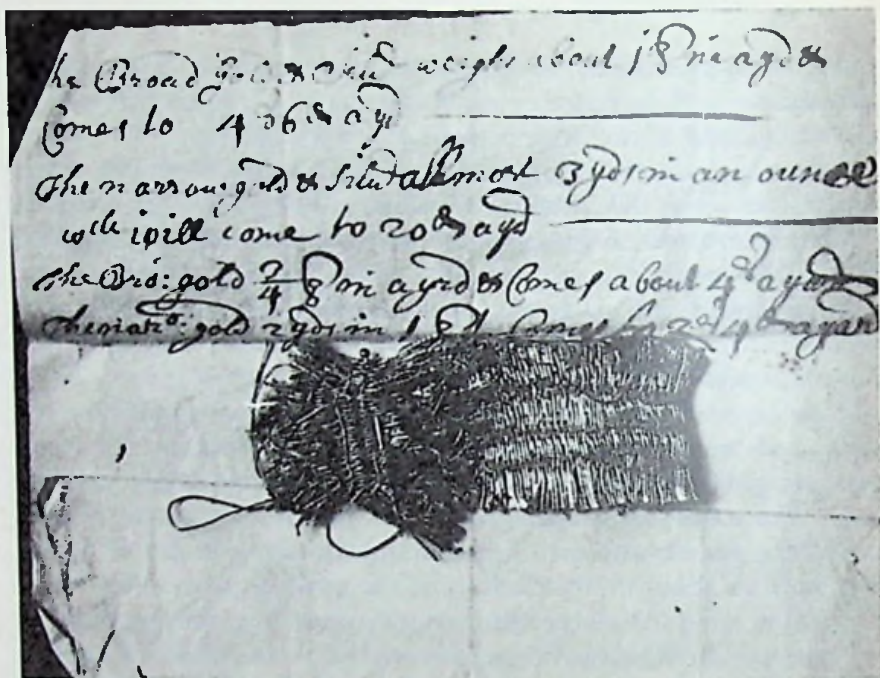 he Broad gold & silu weighs about 1 ℥ in a yd &
Comes to 4 06d a yd
The narrow gold & silud allmost 3 yds in an ounce
wch will come to 20d a yd
The Bro: gold 2/4 ℥ in a yrd & Comes about 4d a yard
The naro: gold 2 yds in 1 Comes to a yard